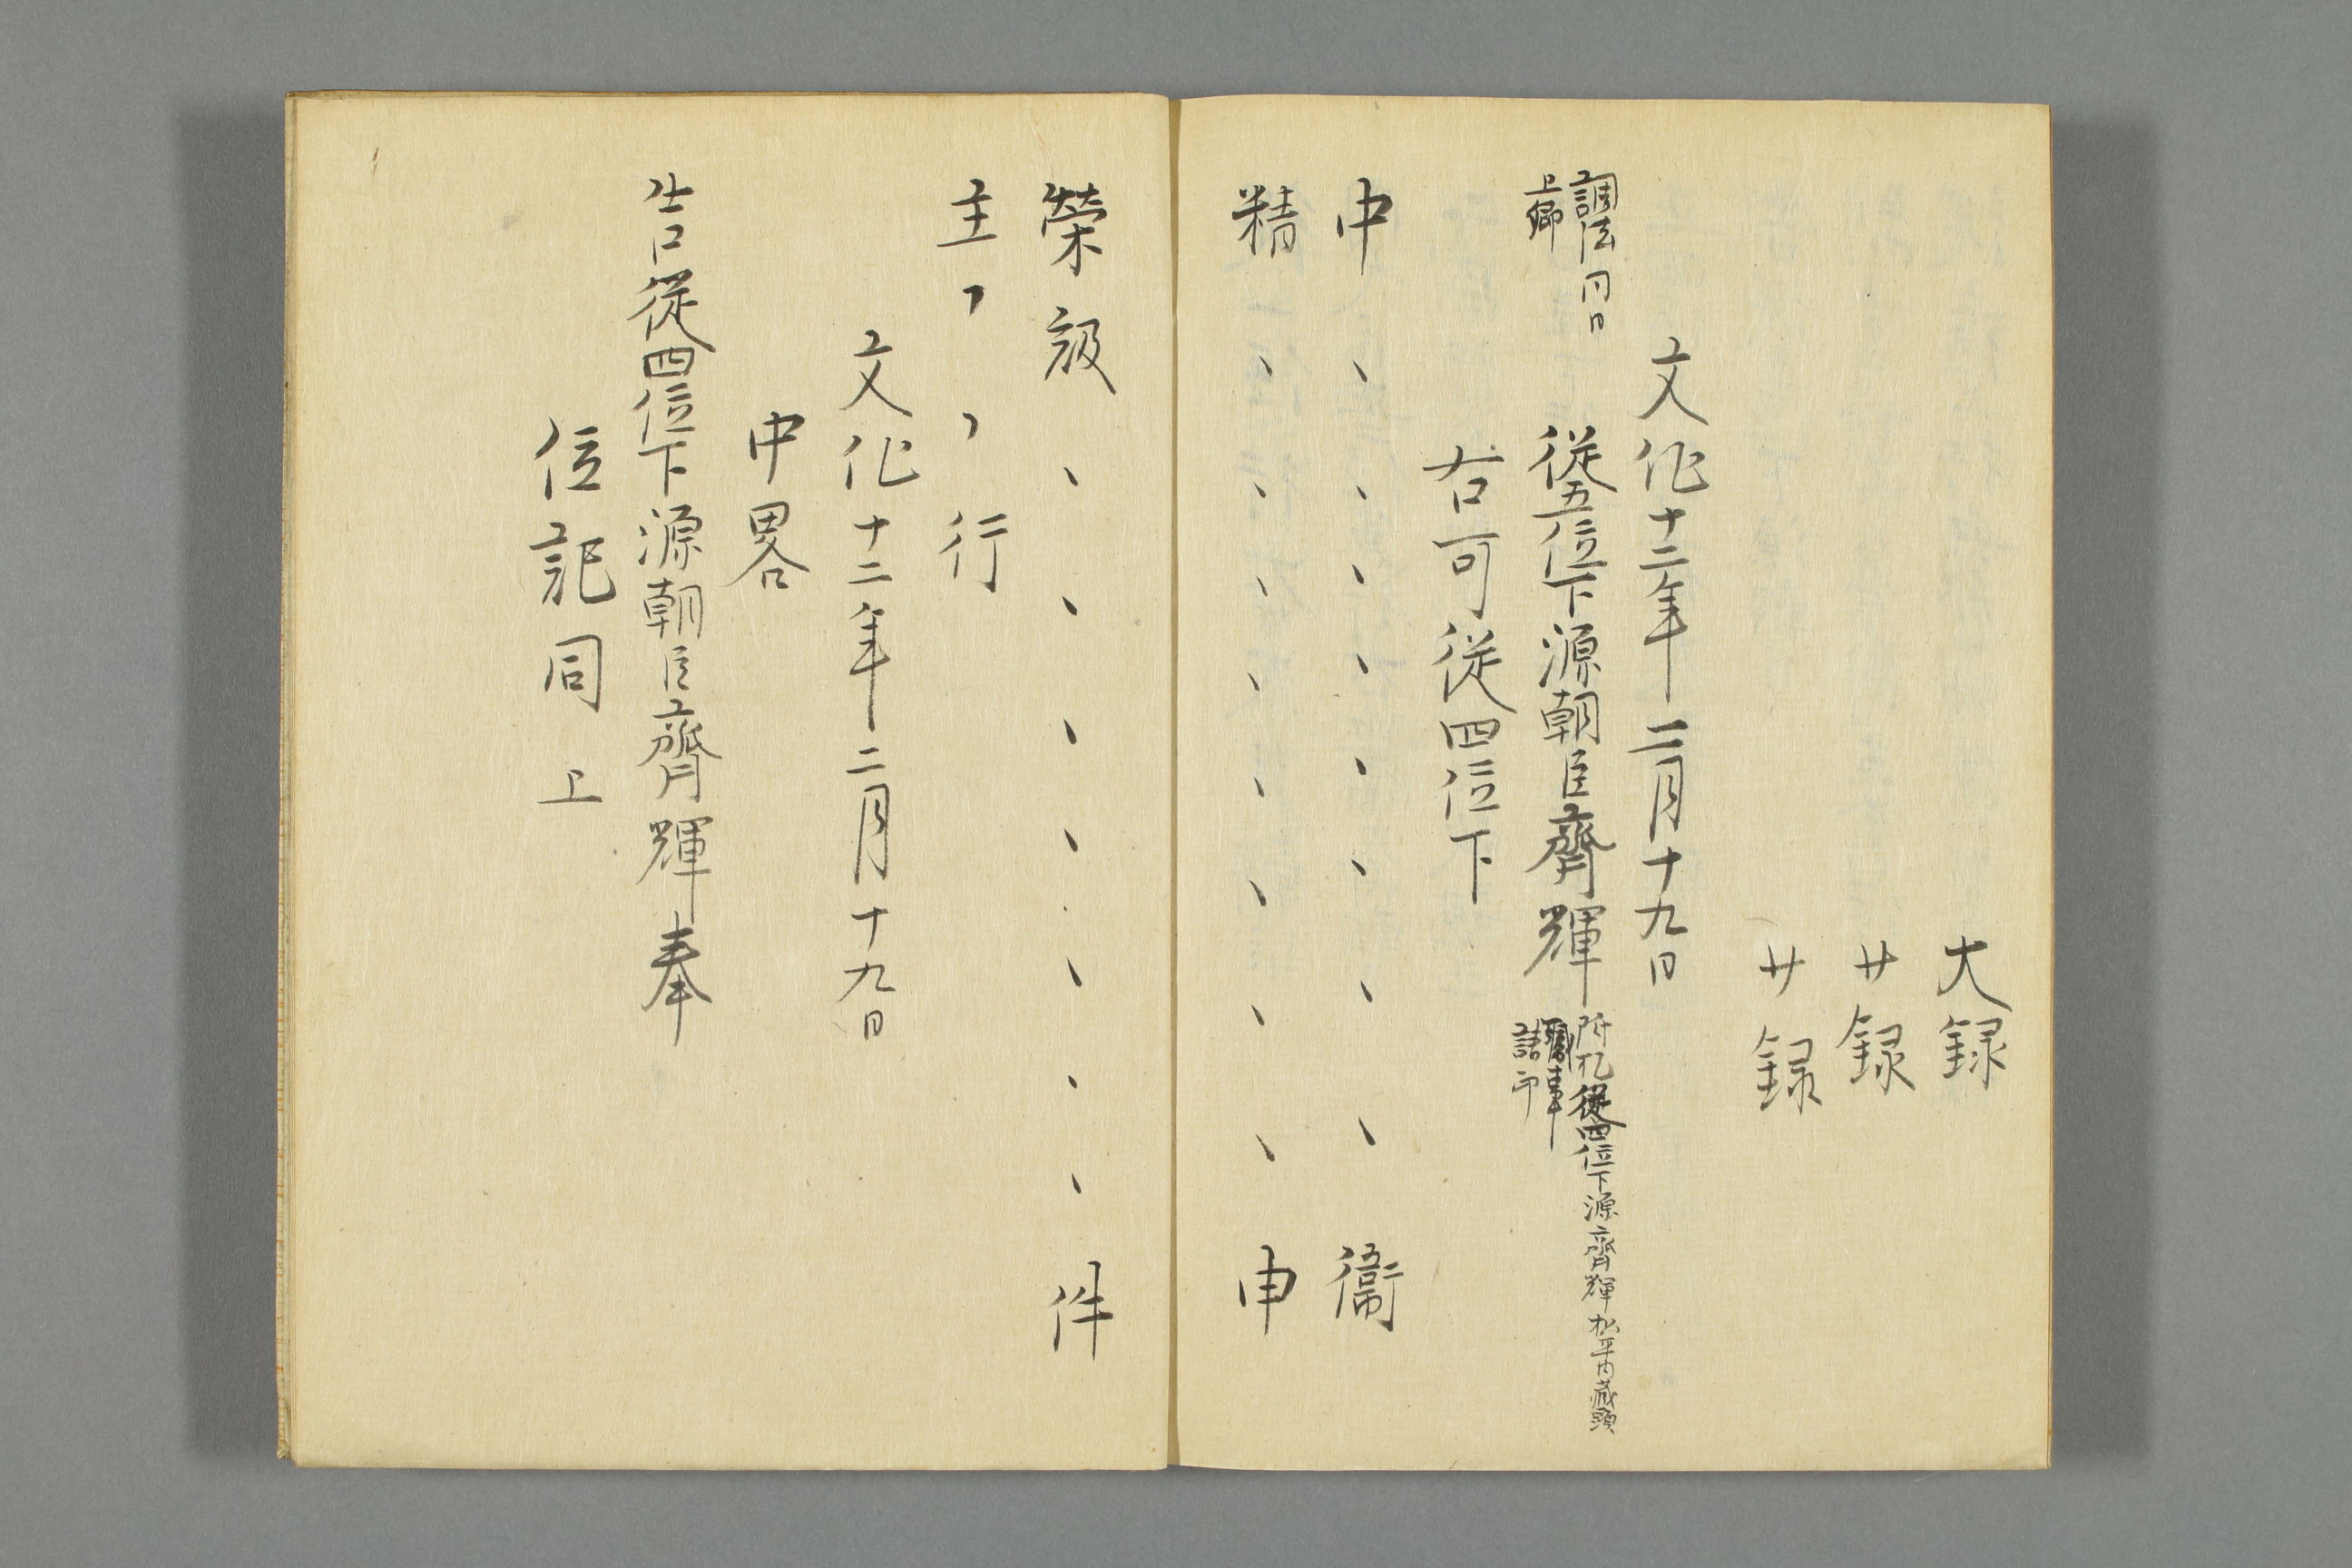 大録
廾録
廾録
文化十二年二月十九日
調法同日
上卿
従五位下源朝臣齊輝
従四位下源齊輝松平内蔵頭
職事
右可従四位下
中、、、、、、、、衞
精、、、、、、、、申
榮級、、、、、、、件
主、、行
文化十二年二月十九日
中畧
告従四位下源朝臣齊輝奉
位記同上